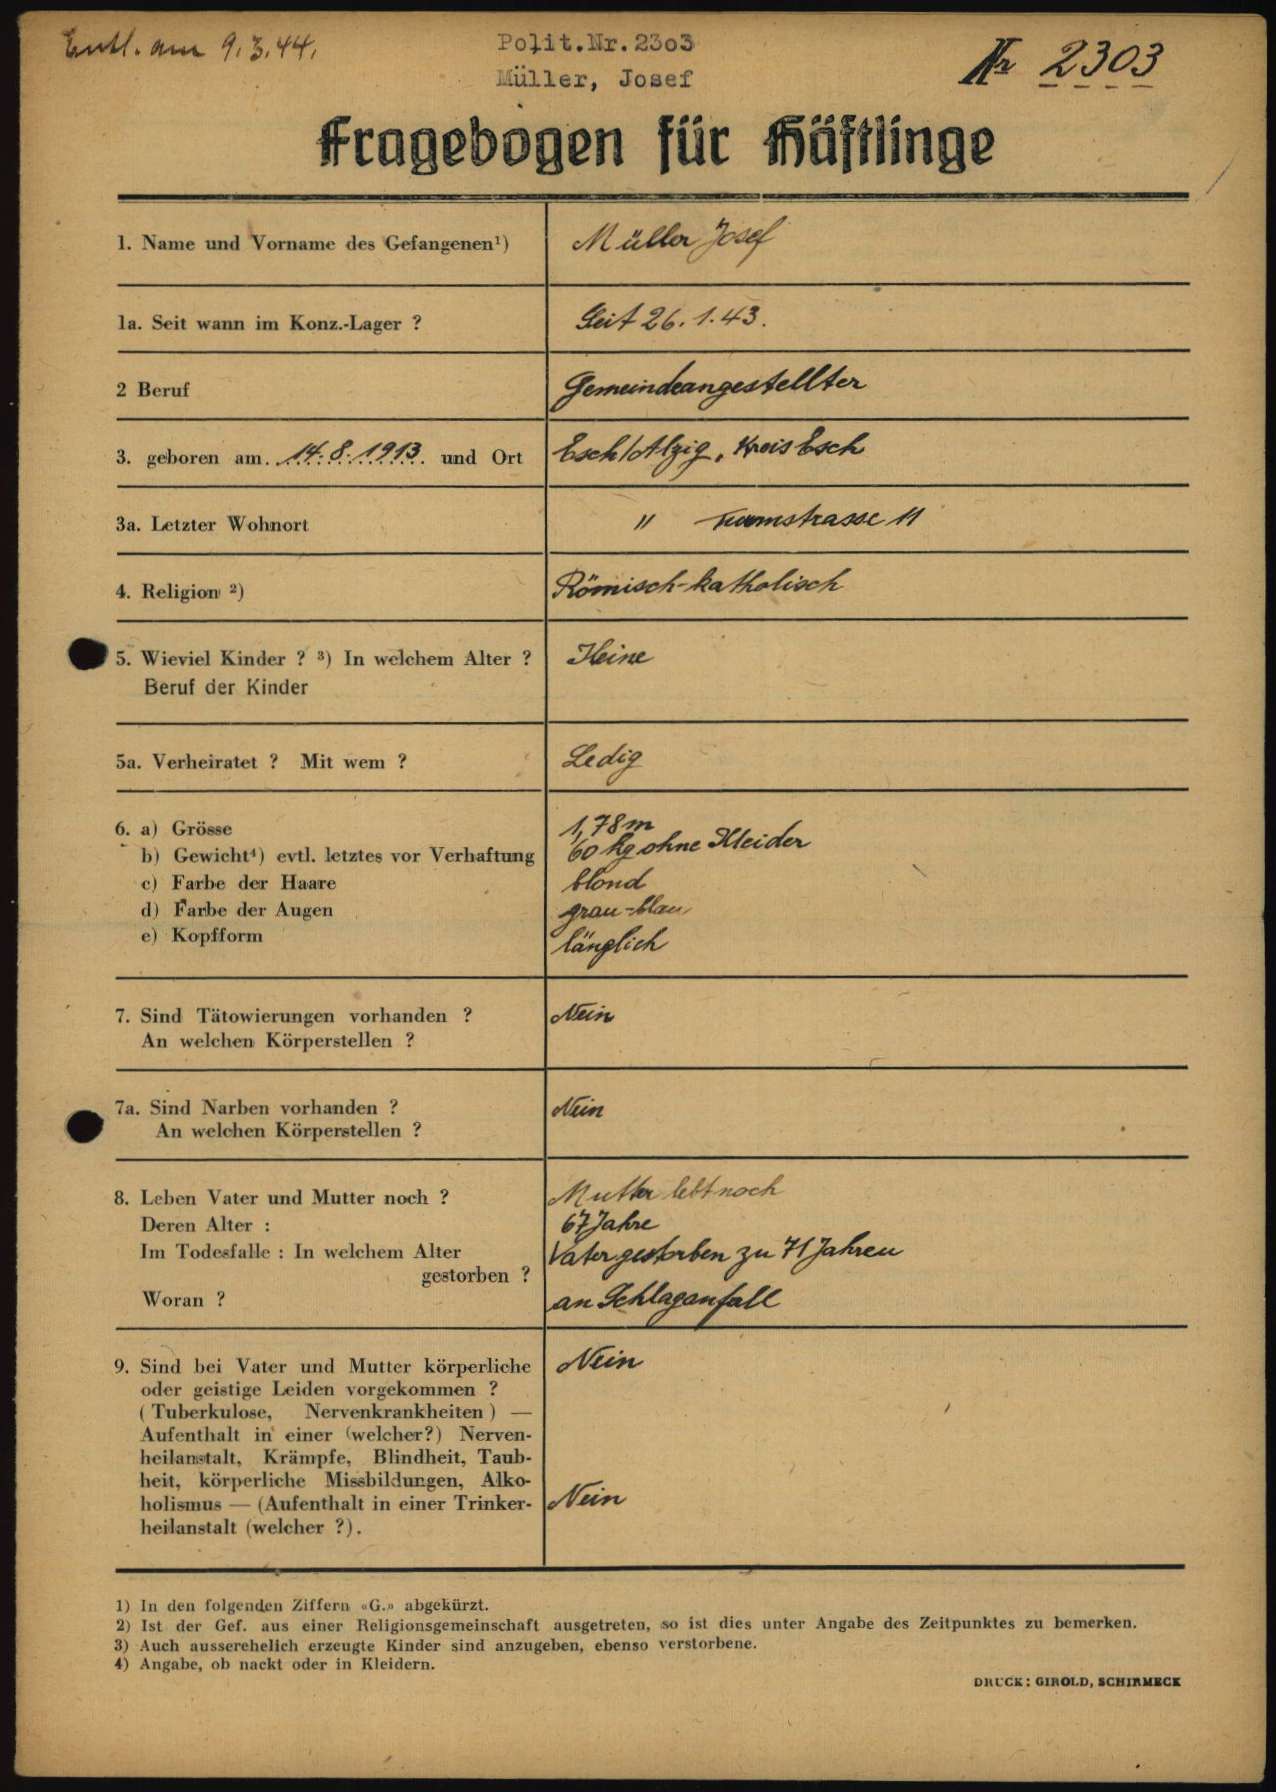 Entl. am 9.3.44.
Polit.Nr.2303
Müller, Josef
Nr 2303
Fragebogen für Häftlinge
1. Name und Vorname des Gefangenen¹)
Müller Josef
1a. Seit wann im Konz.-Lager ?
Seit 26.1.43.
2 Beruf
Gemeindeangestellter
3. geboren am. 14.8.1913 und Ort
Esch/Alzig, Kreis Esch
3a. Letzter Wohnort
" 11
4. Religion ²)
Römisch-katholisch
5. Wieviel Kinder ? ³) In welchem Alter ?
Beruf der Kinder
Keine
5a. Verheiratet ? Mit wem ?
Ledig
6. a) Grösse
1,78m
b) Gewicht⁴) evtl. letztes vor Verhaftung
60 kg ohne Kleider
c) Farbe der Haare
blond
d) Farbe der Augen
grau-blau
e) Kopfform
länglich
7. Sind Tätowierungen vorhanden ?
An welchen Körperstellen ?
Nein
7a. Sind Narben vorhanden ?
An welchen Körperstellen ?
Nein
8. Leben Vater und Mutter noch ?
Mutter lebt noch
Deren Alter :
67 Jahre
Im Todesfalle : In welchem Alter
gestorben ?
Vater gestorben zu 71 Jahren
Woran ?
an Schlaganfall
9. Sind bei Vater und Mutter körperliche
oder geistige Leiden vorgekommen ?
( Tuberkulose, Nervenkrankheiten ) —
Aufenthalt in einer (welcher?) Nerven-
heilanstalt, Krämpfe, Blindheit, Taub-
heit, körperliche Missbildungen, Alko-
holismus — (Aufenthalt in einer Trinker-
heilanstalt (welcher ?).
Nein
Nein
1) In den folgenden Ziffern «G.» abgekürzt.
2) Ist der Gef. aus einer Religionsgemeinschaft ausgetreten, so ist dies unter Angabe des Zeitpunktes zu bemerken.
3) Auch ausserehelich erzeugte Kinder sind anzugeben, ebenso verstorbene.
4) Angabe, ob nackt oder in Kleidern.
DRUCK: GIROLD, SCHIRMECK